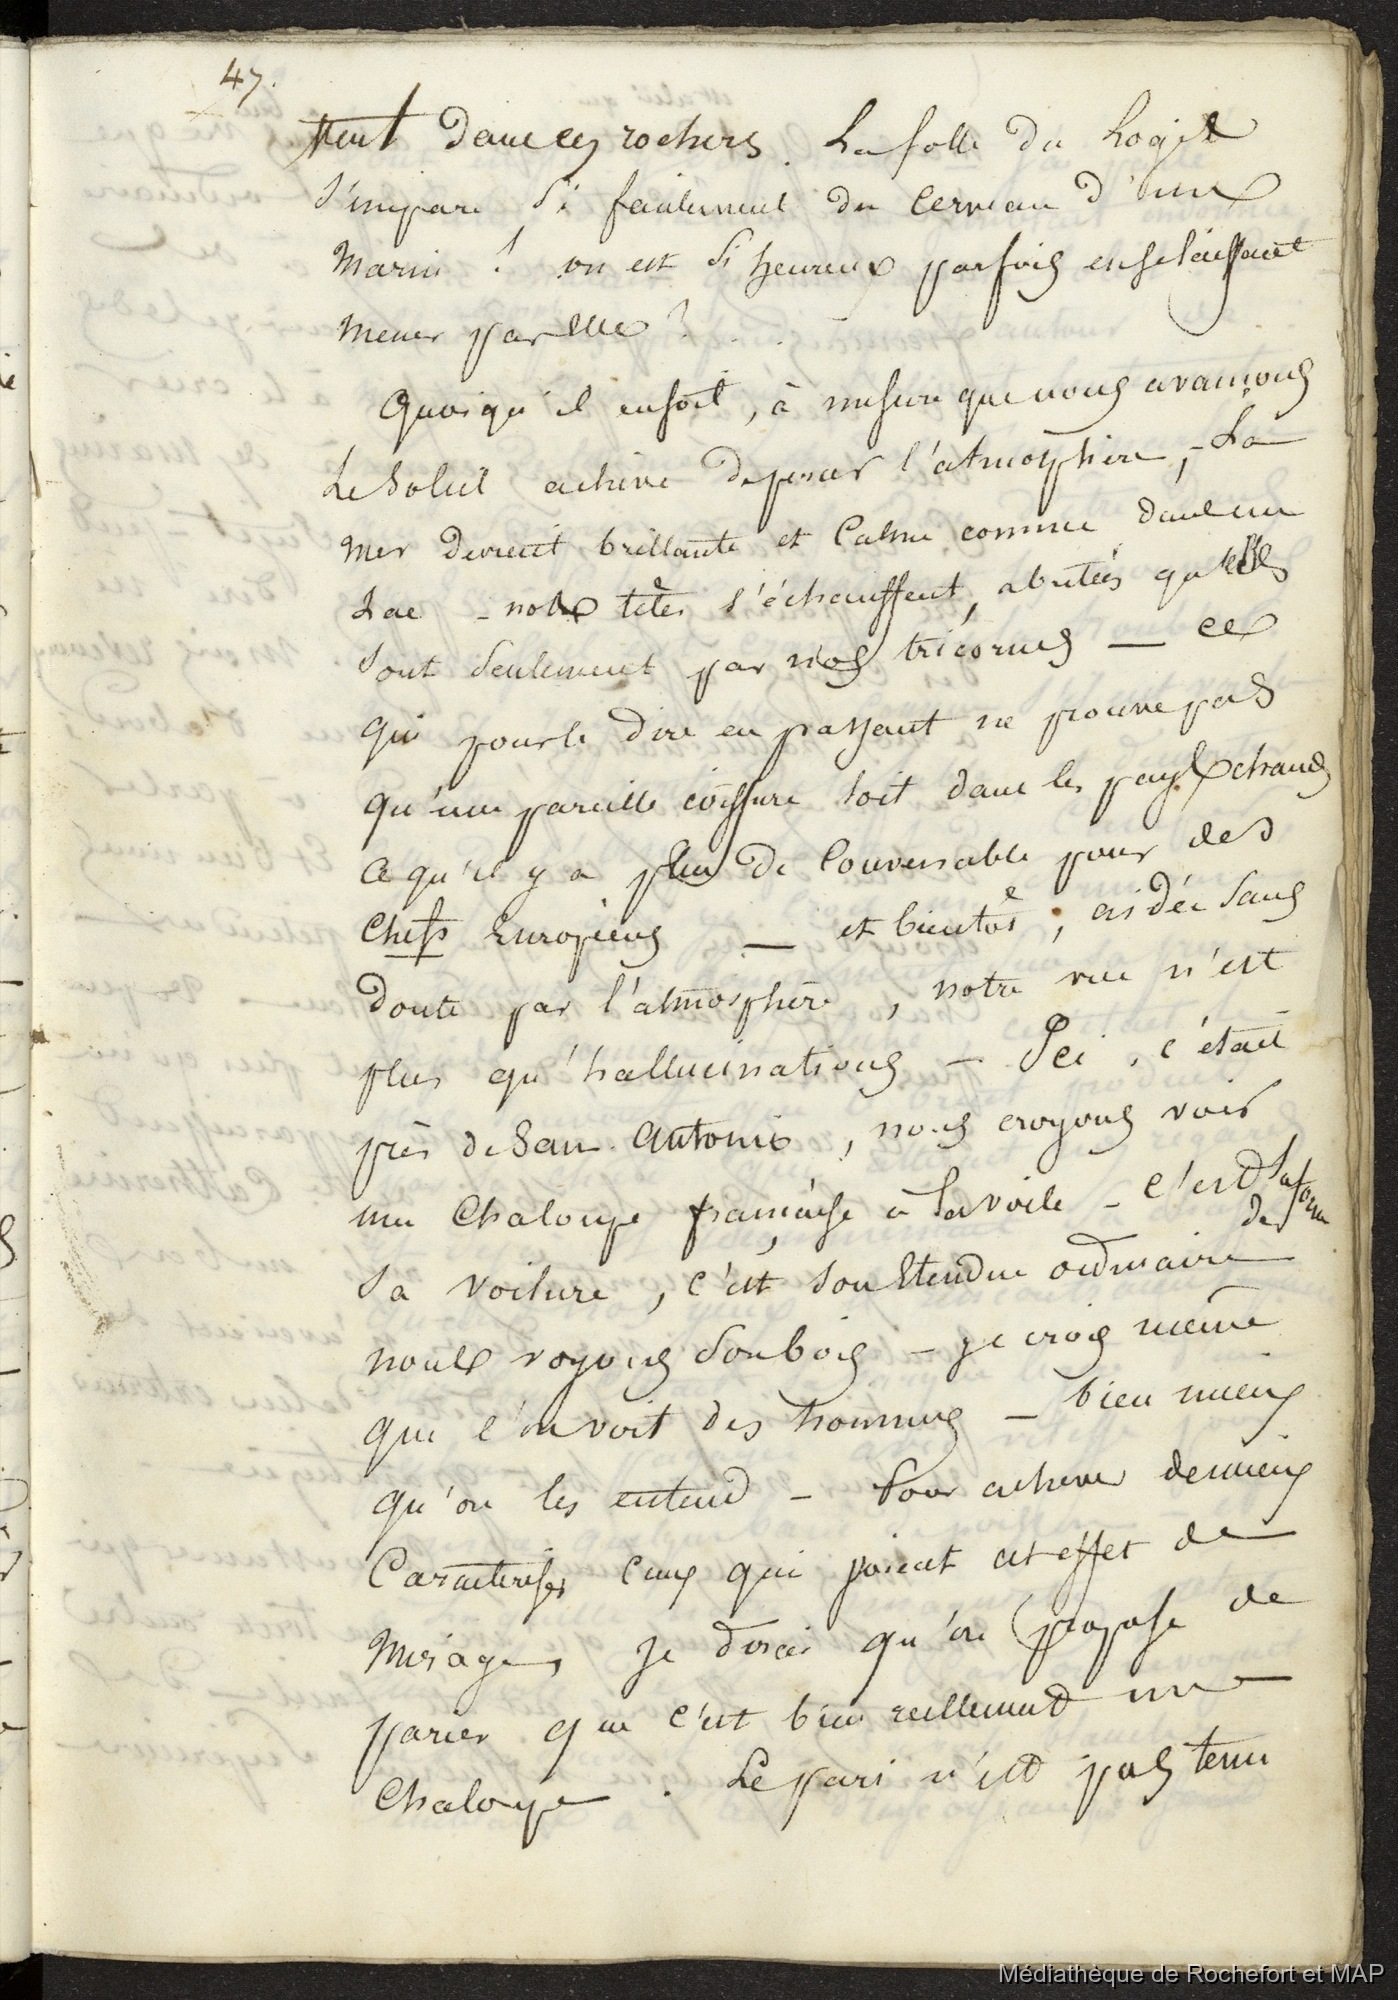 47.
vent dans ces rochers. La folle du logis
s'empare si facilement du cerveau d'un
marin ! on est si heureux parfois en se laissant
mener par elle ! . .
Quoiqu'il en soit, à mesure que nous avançons
le soleil achève de percer l'atmosphère, - La
mer devient brillante et calme comme dans un
Lac - nos têtes s'échauffent, abritées qu'elles
sont seulement par nos tricornes — ce
qui pour le dire en passant ne prouve pas
qu'une pareille coiffure soit dans les pays chauds
ce qu'il y a plus de convenable pour des
chefs Européens — et bientôt, aidée sans
doute par l'atmosphère, notre vue n'est
plus qu'hallucinations - Ici, c'était
près de San Antonio, nous croyons voir
une chaloupe française à la voile - c'est la forme
de
sa voilure, c'est son Etendue ordinaire
nous voyons son bois - je crois même
que l'on voit des hommes - bien mieux
qu'on les entend - Pour achever de mieux
Caractériser ceux qui voient cet effet de
mirage, je dirai qu'on propose de
parier que c'est bien réellement une
chaloupe . Le pari n'est pas tenu
Médiathèque de Rochefort et MAP